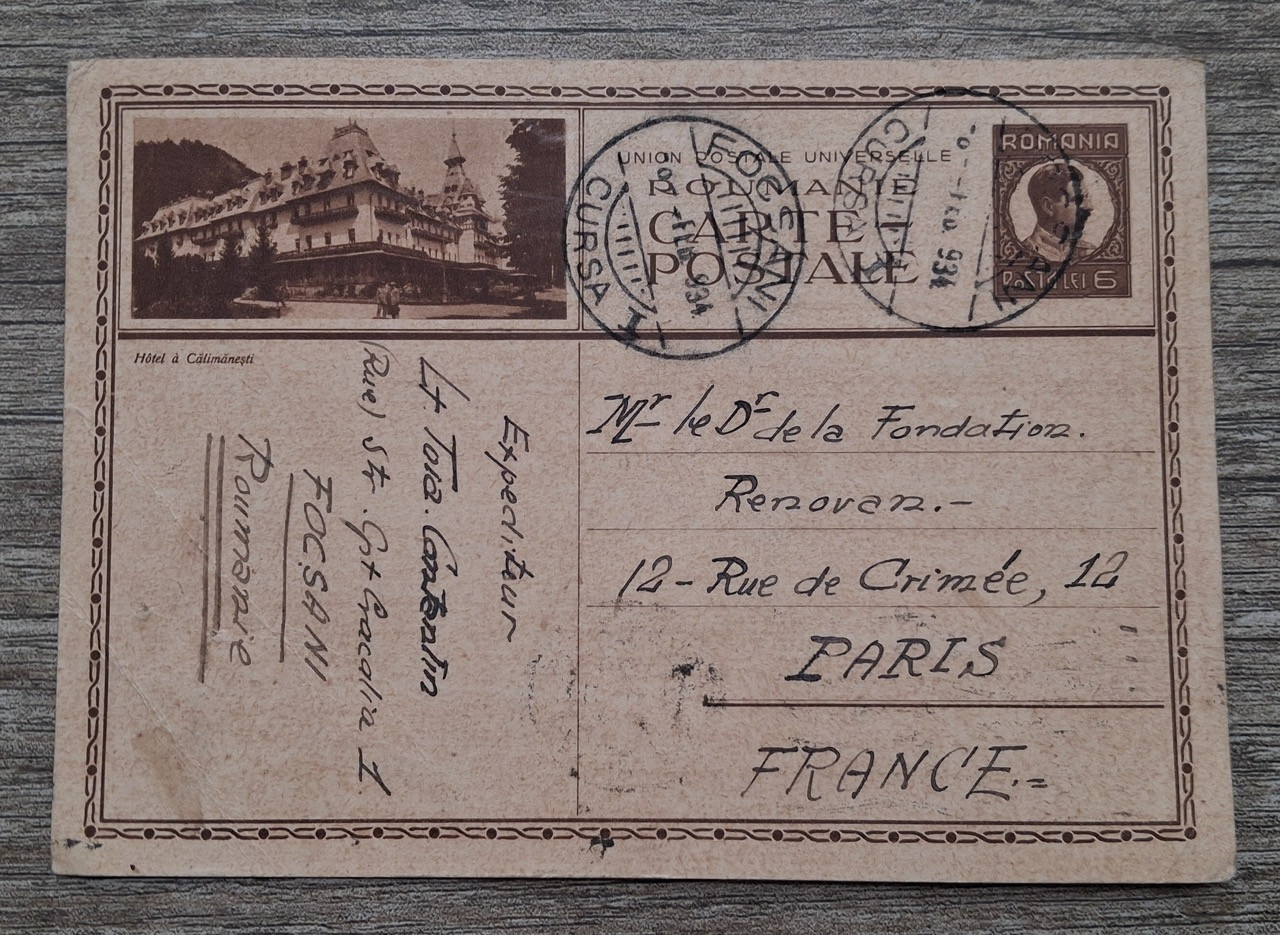 UNION POSTALE UNIVERSELLE
ROUMANIE
CARTE POSTALE
ROMANIA
POSTA LEI 6
FOCȘANI
CURSA I
934
CURSA
934
Hôtel à Călimănești
Mr le Dr de la Fondation.
Renovan.-
12-Rue de Crimée, 12
PARIS
FRANCE.=
Expediteur
Lt. Tova.
(Rue) Str. Gr
FOCSANI
Roumanie